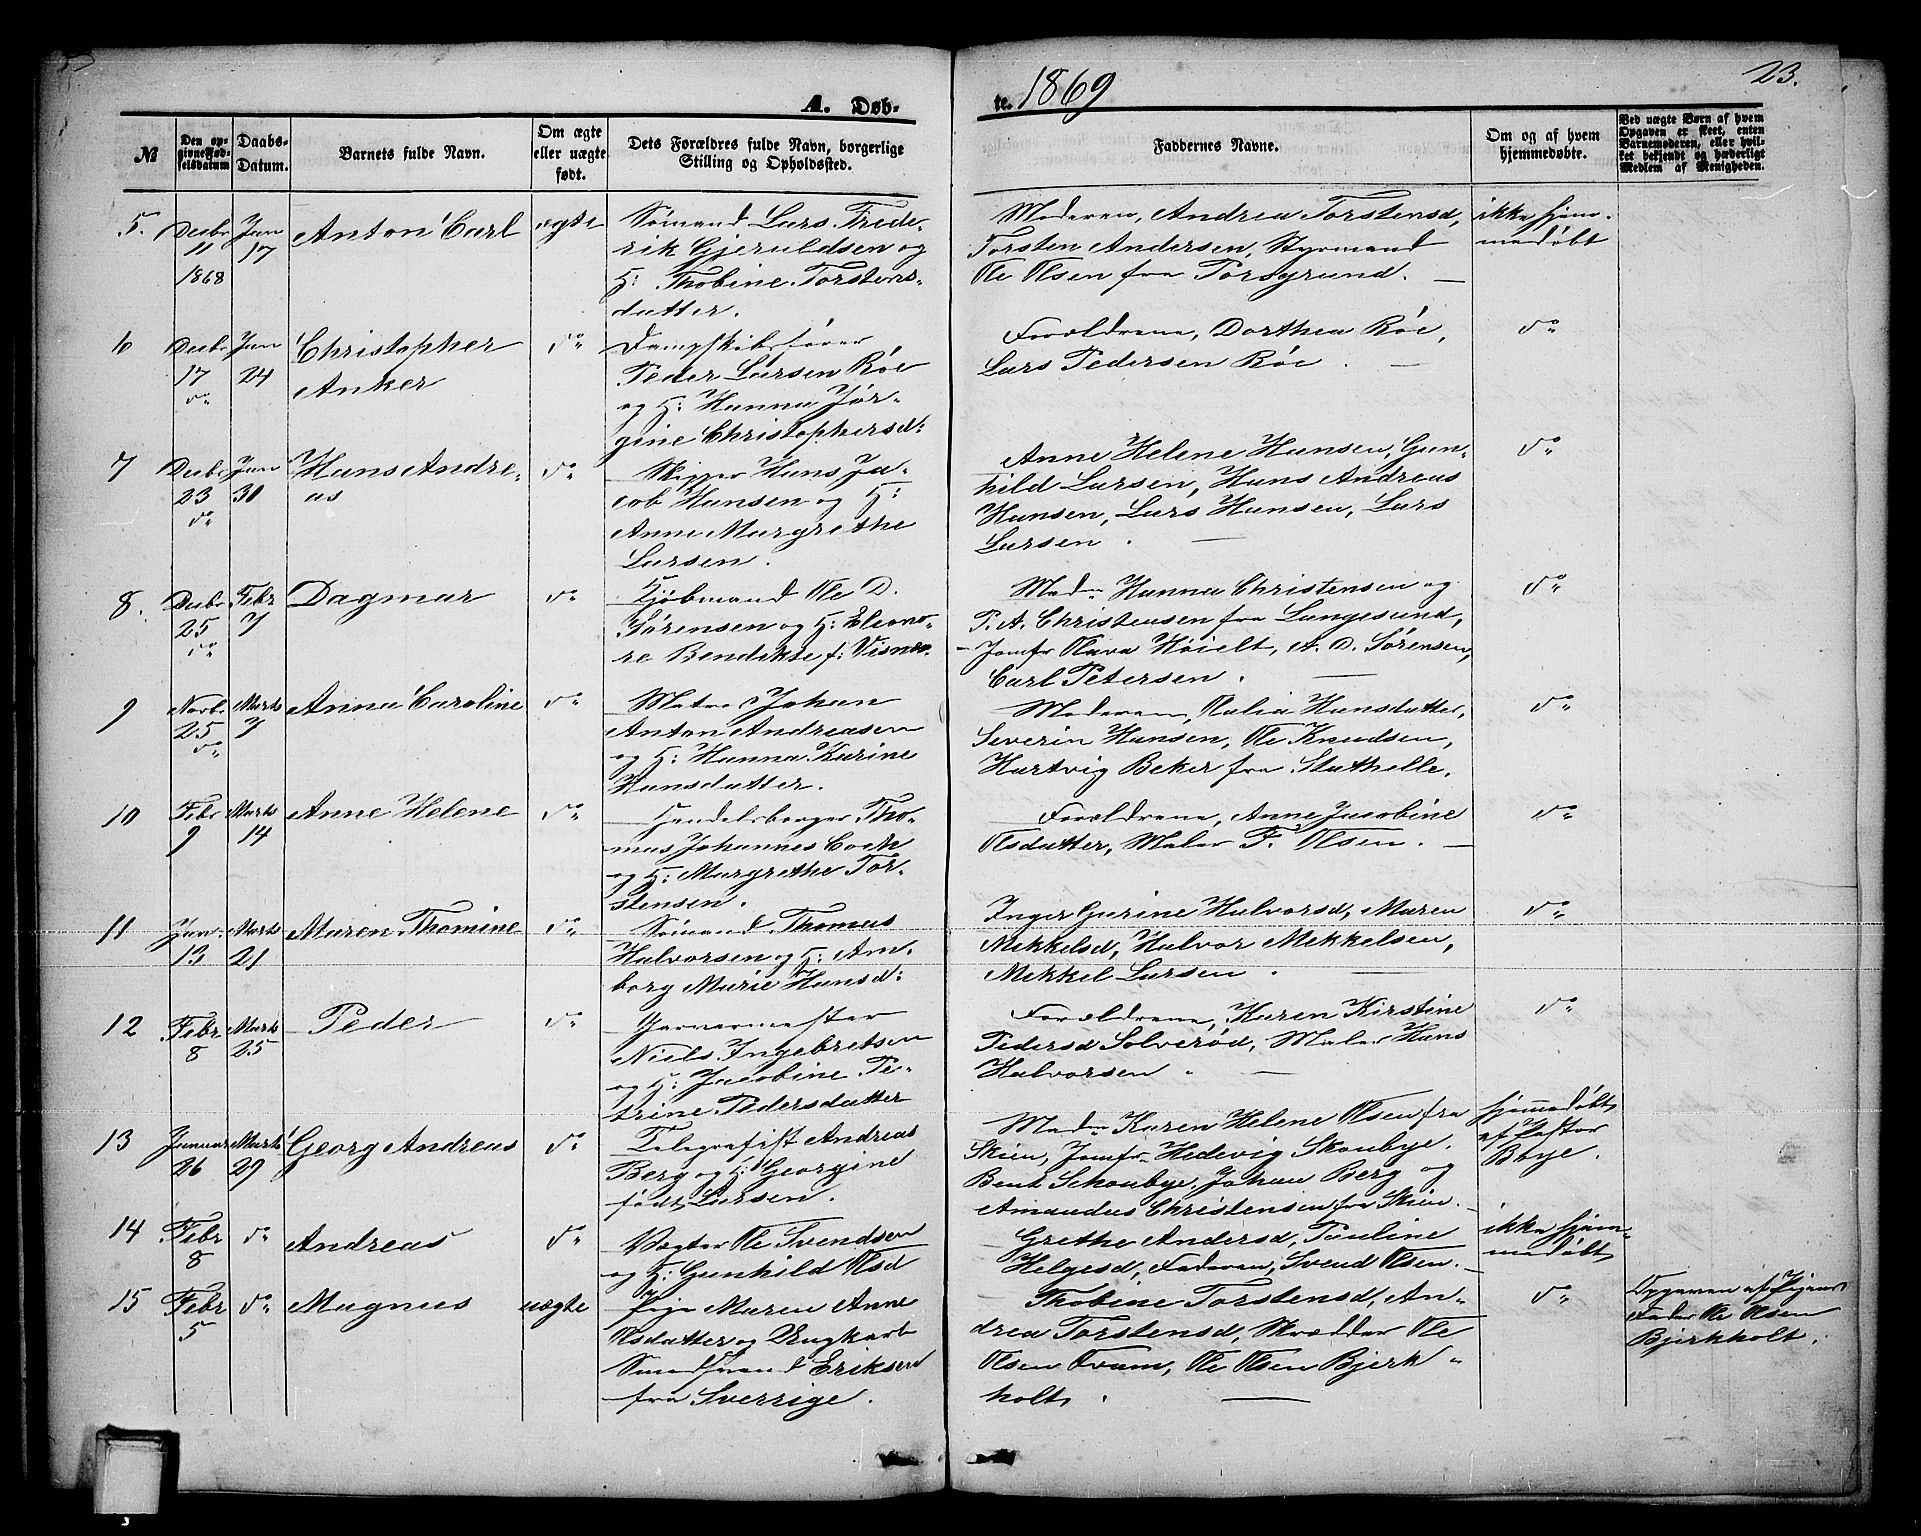 A. Døb-
te. 1869
23.
№
Den op-
givne Fød-
selsdatum
Daabs-
Datum.
Barnets fulde Navn.
Om ægte
eller uægte
født.
Dets Forældres fulde Navn, borgerlige
Stilling og Opholdssted.
Faddernes Navne.
Om og af hvem
hjemmedøbte.
Ved uægte Børn af hvem
Opgaven er skeet, enten
Barnemoderen, eller hvil-
ket bekjendt og hæderligt
Medlem af Menigheden.
5.
Decbr
11
1868
Jan
17
Anton Carl
ægte
Sømand Lars Frede-
rik Gjeruldsen og
H: Thobine Torstens-
datter.
Moderen, Andrea Torstensd,
Torsten Andersen, Styrmand
Ole Olsen fra Porsgrund.
ikke hjem-
medøbt
6
Decbr
17
do
Jan
24
Christopher
Anker
do
Dampskibsfører
Peder Larsen Röe
og H: Hanna Jör-
gine Christophersd:
Forældrene, Dorthea Röe,
Lars Pedersen Röe.
do
7
Decbr
23
do
Jan
30
Hans Andre-
as
do
Skipper Hans Ja-
cob Hansen og H:
Anne Margrethe
Larsen.
Anne Helene Hansen, Gun-
hild Larsen, Hans Andreas
Hansen, Lars Hansen, Lars
Larsen.
do
8.
Decbr
25
do
Febr
7
Dagmar
do
Kjöbmand Ole D.
Sörensen og H: Eleono-
re Bendikte f:
Mad: Hanna Christensen og
P. A. Christensen fra Langesund,
Jomfr Olava Höielt, A. D. Sörensen,
Carl Petersen.
do
9
Novbr
25
do
Marts
7
Anna Caroline
do
Matros Johan
Anton Andreasen
og H: Hanna Karine
Hansdatter.
Moderen, Hansdatter,
Severin Hansen, Ole Knudsen,
Hartvig Beker fra Stathelle.
do
10
Febr
9
Marts
14
Anne Helene
do
Handelsborger Tho-
mas Johannes Coch
og H: Margrethe Tor-
stensen.
Forældrene, Anne Jacobine
Olsdatter, Maler F. Olsen.
do
11
Jan.
13
Marts
21
Maren Thomine
do
Sömand Thomas
Halvorsen og H: An-
borg Marie Hansd:
Inger Gurine Halvorsd, Maren
Mekkelsd, Halvor Mekkelsen,
Mekkel Larsen.
do
12
Febr
8
Marts
25
Peder
do
Garvermester
Niels Ingebretsen
og H: Jacobine Pe-
trine Pedersdatter
Forældrene, Karen Kirstine
Pedersd Solveröd, Maler Hans
Halvorsen.
do
13
Januar
26
Marts
29
Georg Andreas
do
Telegrafist Andreas
Berg og H: Georgine
född Larsen.
Mad: Karen Helene Olsen fra
Skien, Jomfr. Hedevig Skoubye.
Bent Schoubye, Johan Berg og
Amandus Christensen fra Skien.
hjemmedöbt
af Pastor
Bøye.
14
Febr
8
do
Andreas
do
Vægter Ole Svendsen
og H: Gunhild Olsd
Grethe Andersd, Pauline
Helgesd, Faderen, Svend Olsen.
ikke hjem-
medöbt
15
Febr
5
do
Magnus
uægte
Pige Maren Anne
Olsdatter og Ungkarl
Eriksen
fra Sverrige.
Thobine Torstensd, An-
drea Torstensd, Skrædder Ole
Olsen Fram, Ole Olsen Bjerk-
holt.
do
Opgaven af Pigens
Fader Ole Olsen
Bjerkholt.